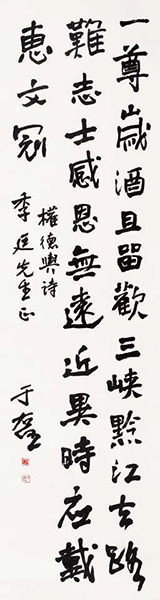 一尊歲酒且留歡三峽黔江去路
難志士感恩無遠近異時應戴
惠文冠
權德輿詩
季廷先生正
于右任